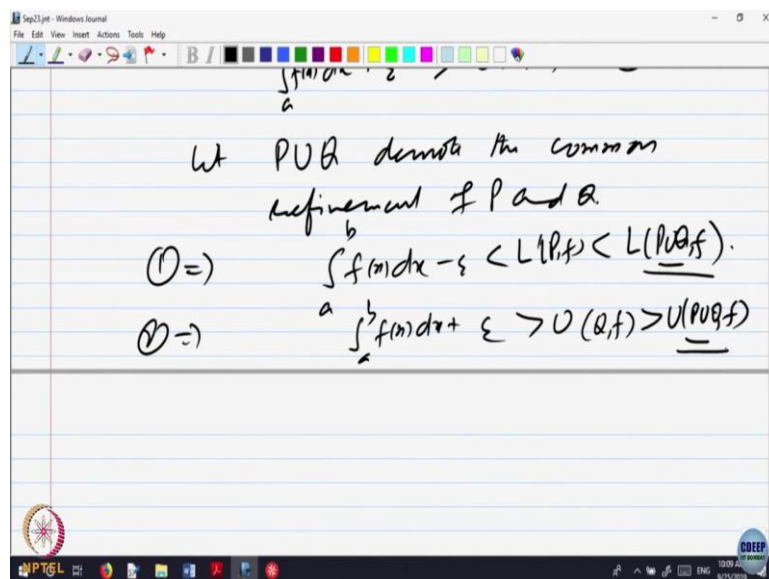 Sep23.jnt - Windows Journal
File Edit View Insert Actions Tools Help
B I
∫f(x)dx + ε >
a
Let PUQ denote the common
refinement of P and Q.
① ⇒) ∫_a^b f(x)dx - ε < L(P,f) < L(PUQ,f).
② ⇒) ∫_a^b f(x)dx + ε > U(Q,f) > U(PUQ,f)
NPTEL
CDEEP
IIT BOMBAY
ENG
9/25/2019